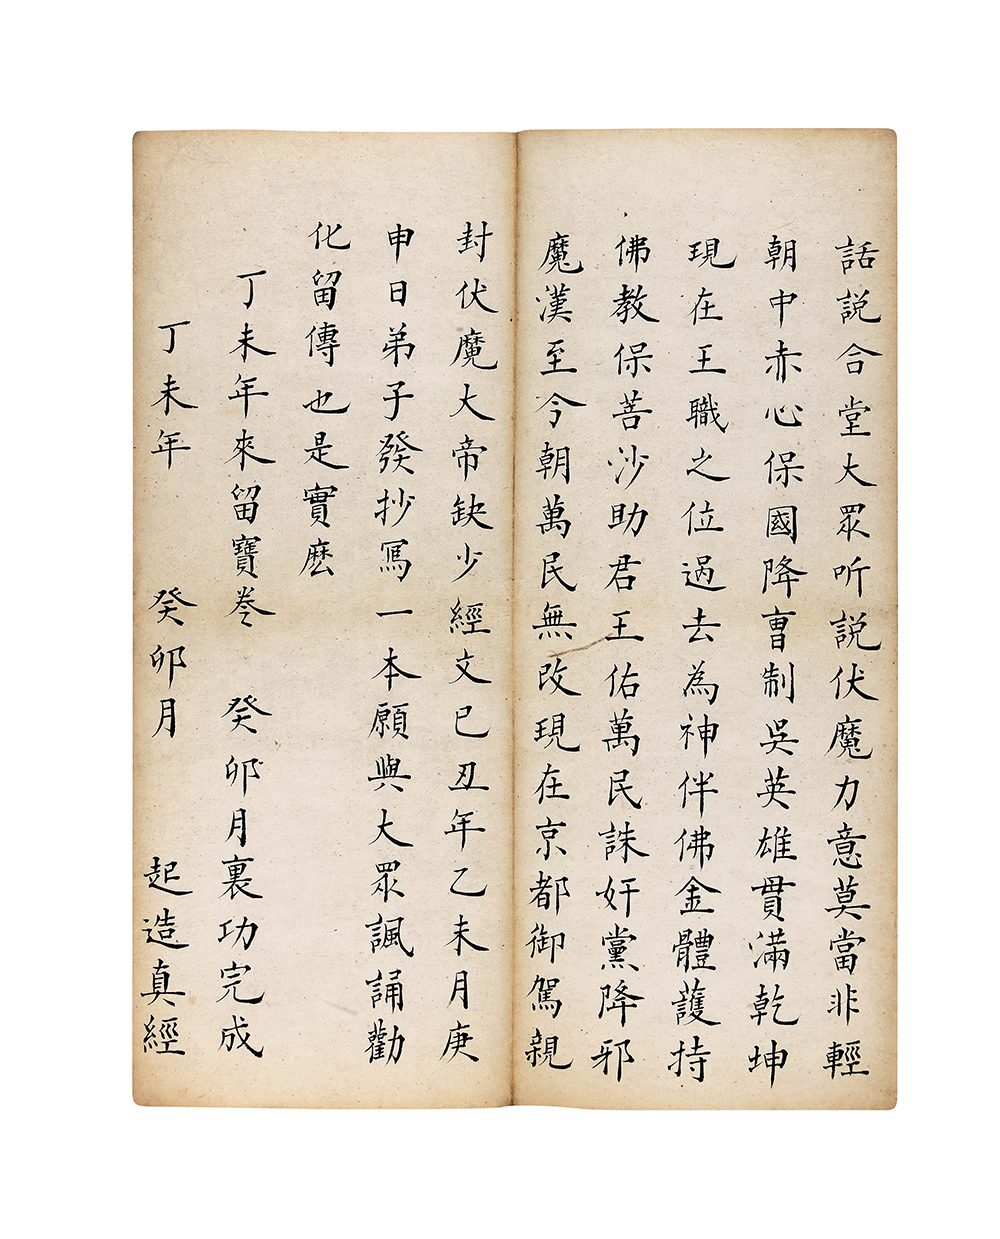 話説合堂大眾听説伏魔力意莫當非輕
朝中赤心保國降曹制吳英雄貫滿乾坤
現在王職之位過去為神伴佛金體護持
佛教保菩沙助君王佑萬民誅奸黨降邪
魔漢至今朝萬民無改現在京都御駕親
封伏魔大帝缺少經文已丑年乙未月庚
申日弟子發抄寫一本願與大眾諷誦勸
化留傳也是實麽
丁未年來留寶卷 癸卯月裏功完成
丁未年 癸卯月 起造真經